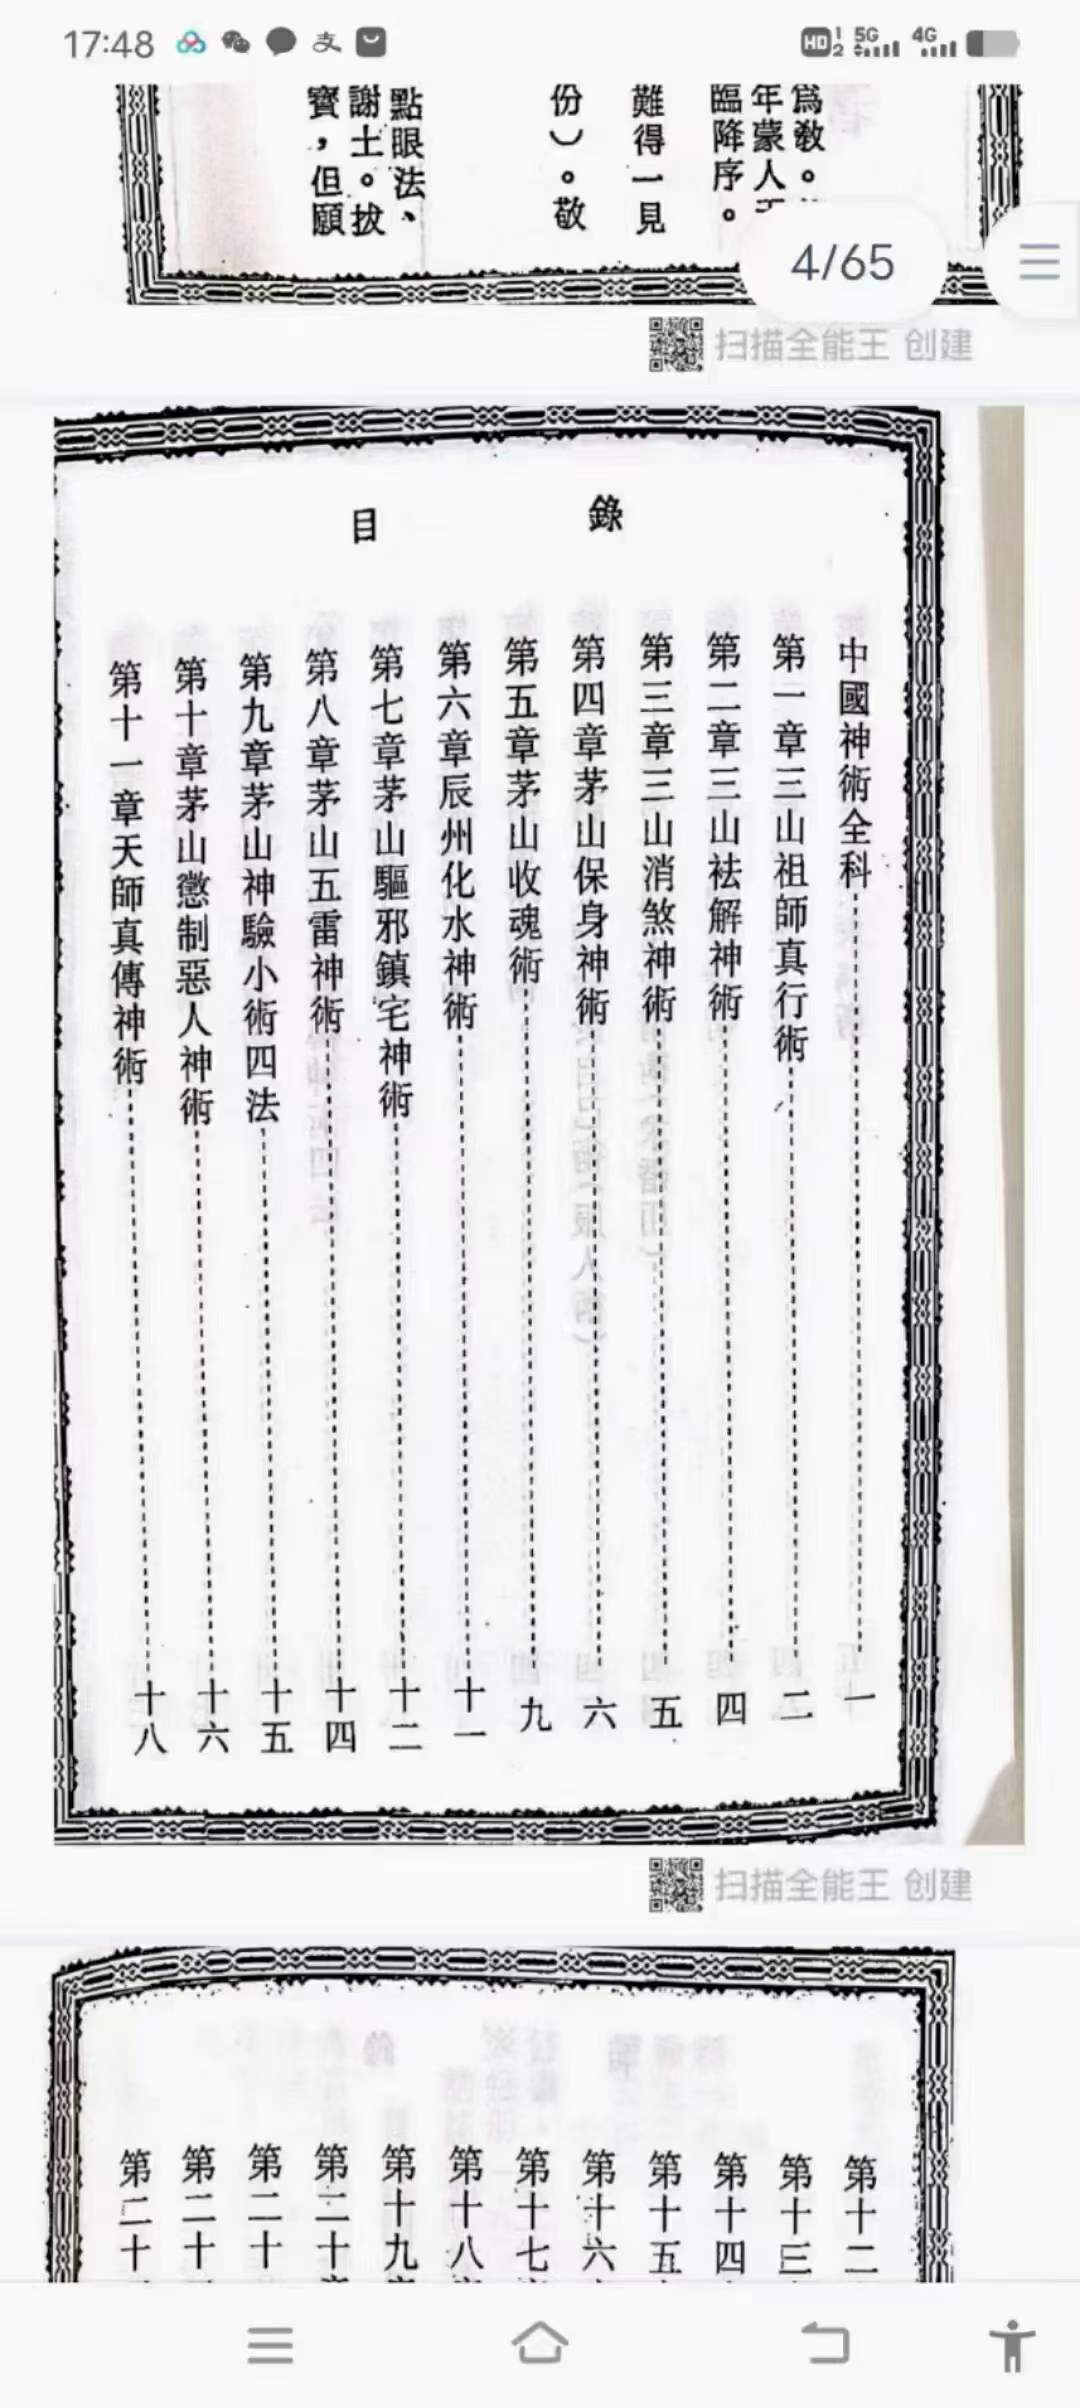 17:48
HD 1 2 5G 4G
為教。
年蒙人
臨降序。
難得一見
份）。敬
點眼法、
謝土。拔
寶，但願
4/65
扫描全能王 创建
目錄
中國神術全科 一
第一章三山祖師真行術 二
第二章三山祛解神術 四
第三章三山消煞神術 五
第四章茅山保身神術 六
第五章茅山收魂術 九
第六章辰州化水神術 十一
第七章茅山驅邪鎮宅神術 十二
第八章茅山五雷神術 十四
第九章茅山神驗小術四法 十五
第十章茅山懲制惡人神術 十六
第十一章天師真傳神術 十八
扫描全能王 创建
第十二
第十三
第十四
第十五
第十六
第十七
第十八
第十九
第二十
第二十
第二十
第二十